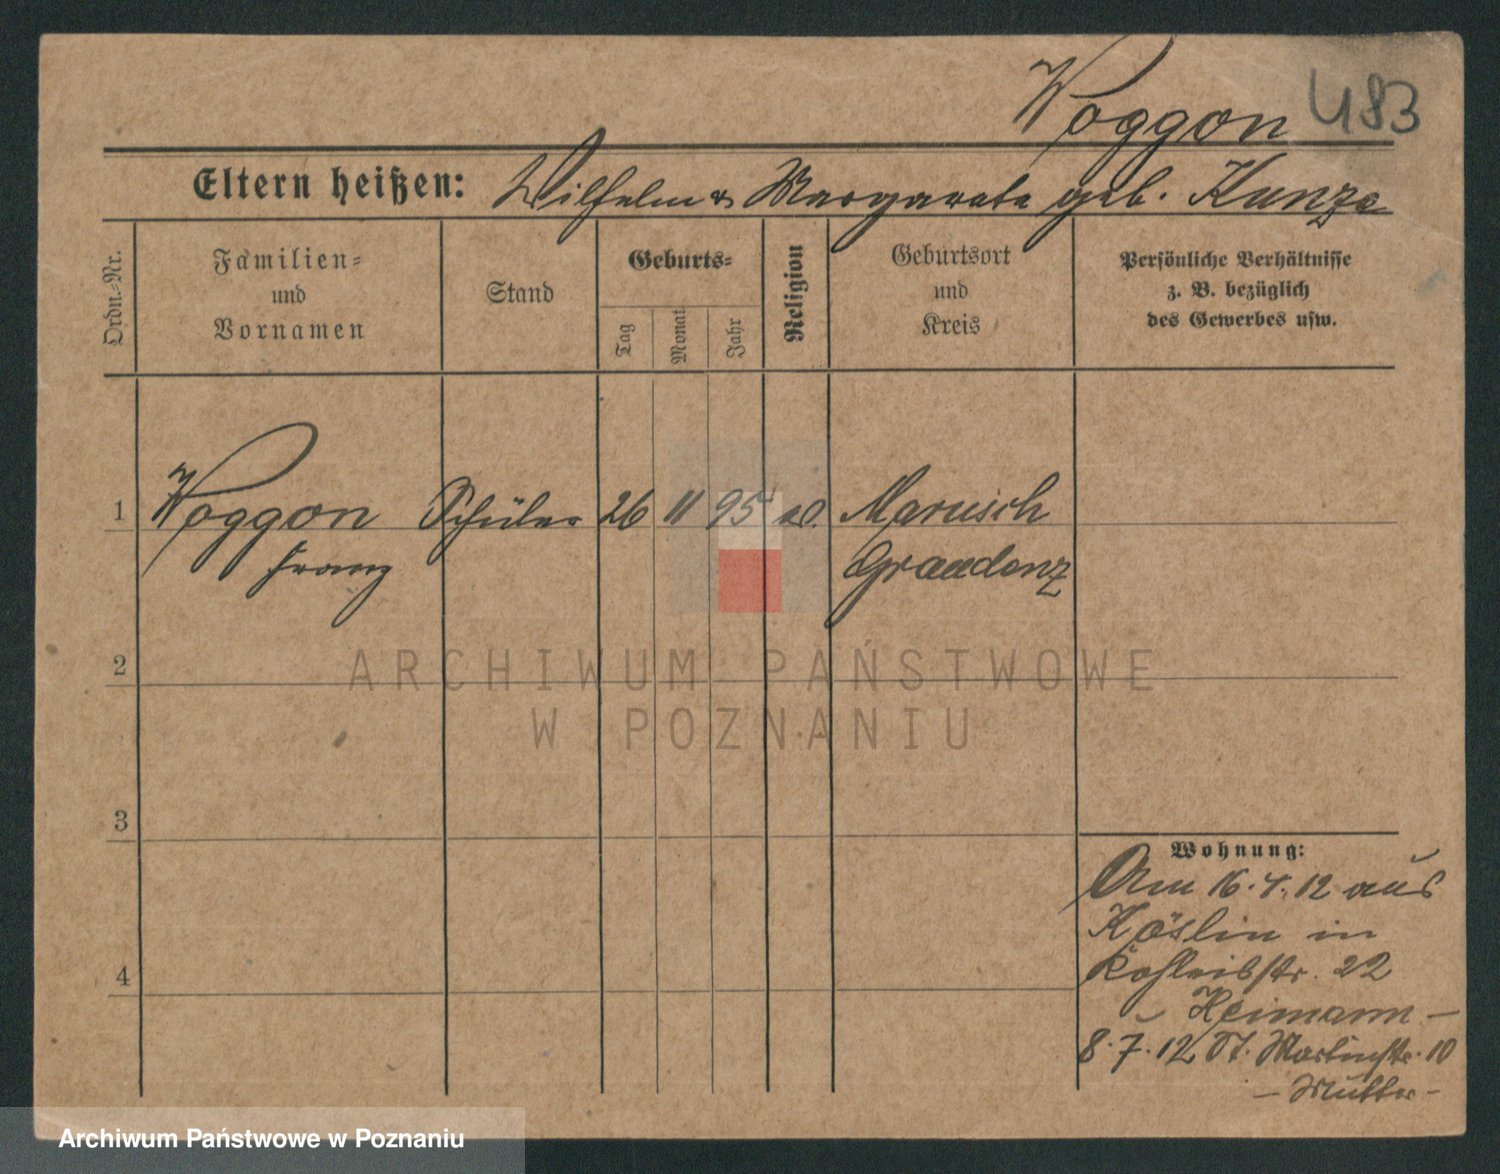 Woggon 483
Eltern heißen: Wilhelm & Margarete geb. Kunze
Ordn.-Nr.
Familien-
und
Vornamen
Stand
Geburts-
Tag
Monat
Jahr
Religion
Geburtsort
und
Kreis
Persönliche Verhältnisse
z. B. bezüglich
des Gewerbes usw.
1 Woggon Schüler 26 11 95 Marusch
Franz Graudenz
2
ARCHIWUM PAŃSTWOWE
W POZNANIU
3
4
Wohnung:
Am 16.4.12 aus
Köslin in
Kohleisstr. 22
– Heimann –
8.7.12 St. Martinstr. 10
– Mutter –
Archiwum Państwowe w Poznaniu